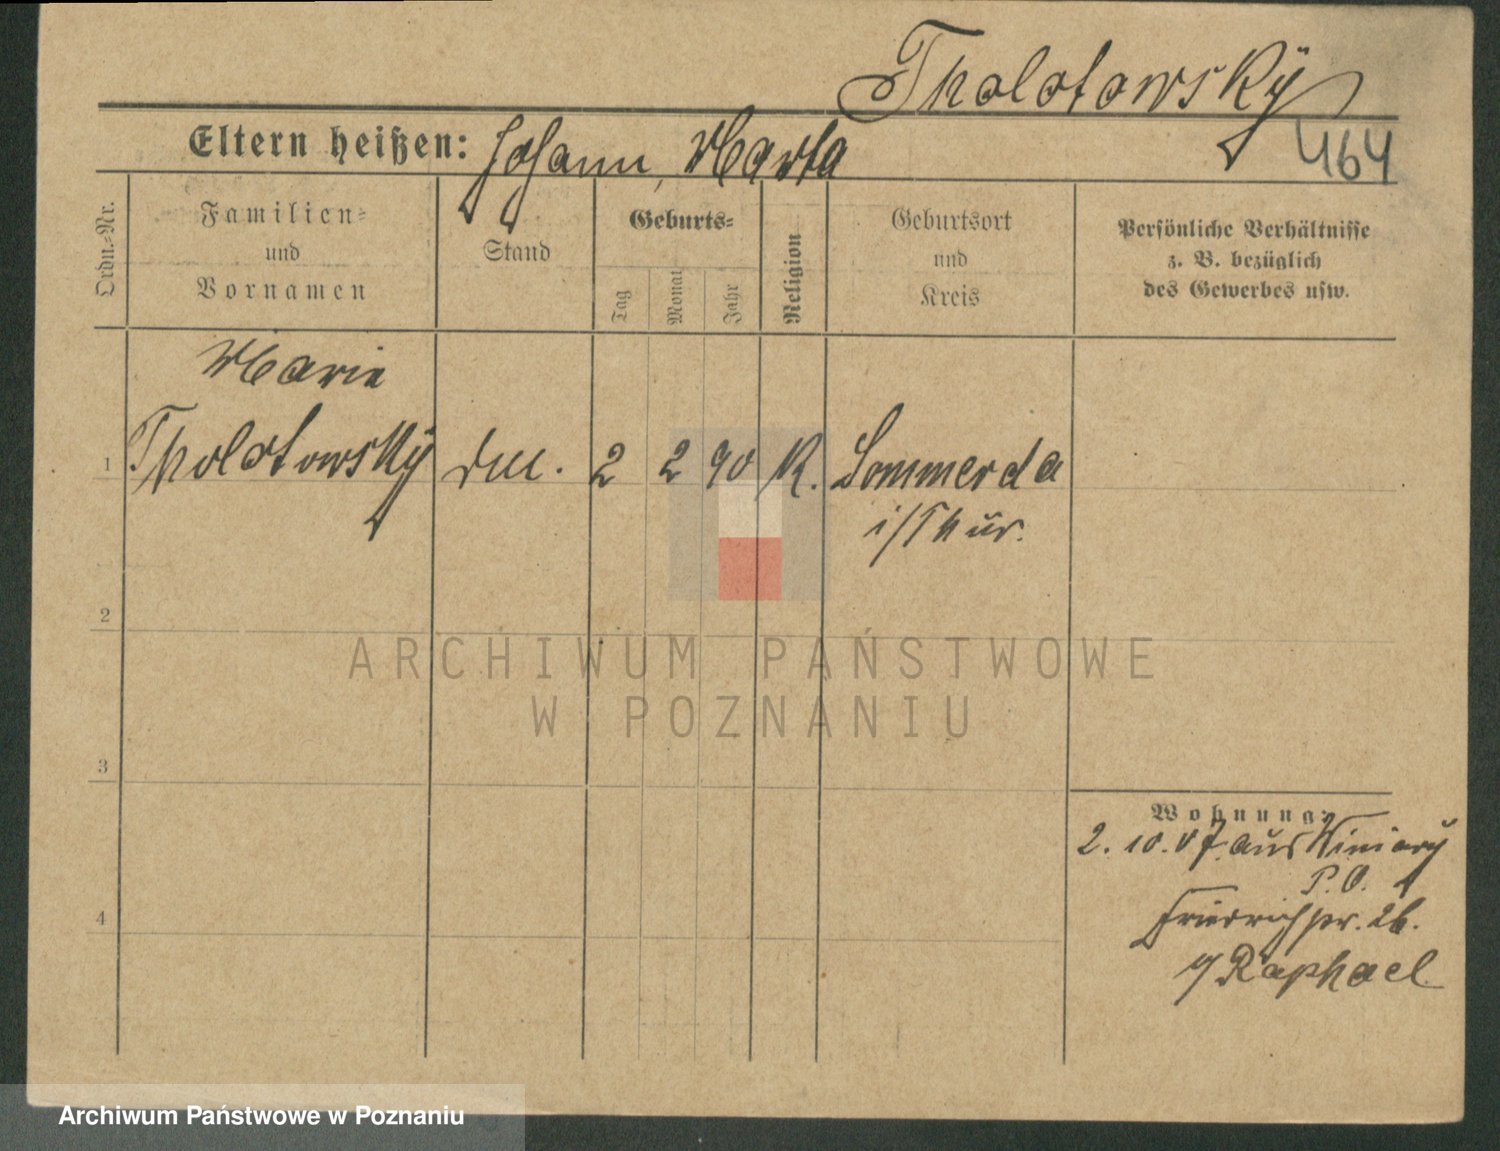 Tholotowskÿ
464
Eltern heißen: Johann, Marta
Ordn.=Nr.
Familien=
und
Vornamen
Stand
Geburts=
Tag
Monat
Jahr
Religion
Geburtsort
und
Kreis
Persönliche Verhältnisse
z. B. bezüglich
des Gewerbes usw.
Marie
1 Tholotowskÿ 2 2 90 K. Sommerda
i/Thür.
2
3
4
Wohnung:
2. 10. 07. aus Winiary
P. O.
Friedrichstr. 26.
b/ Raphael
ARCHIWUM PAŃSTWOWE
W POZNANIU
Archiwum Państwowe w Poznaniu